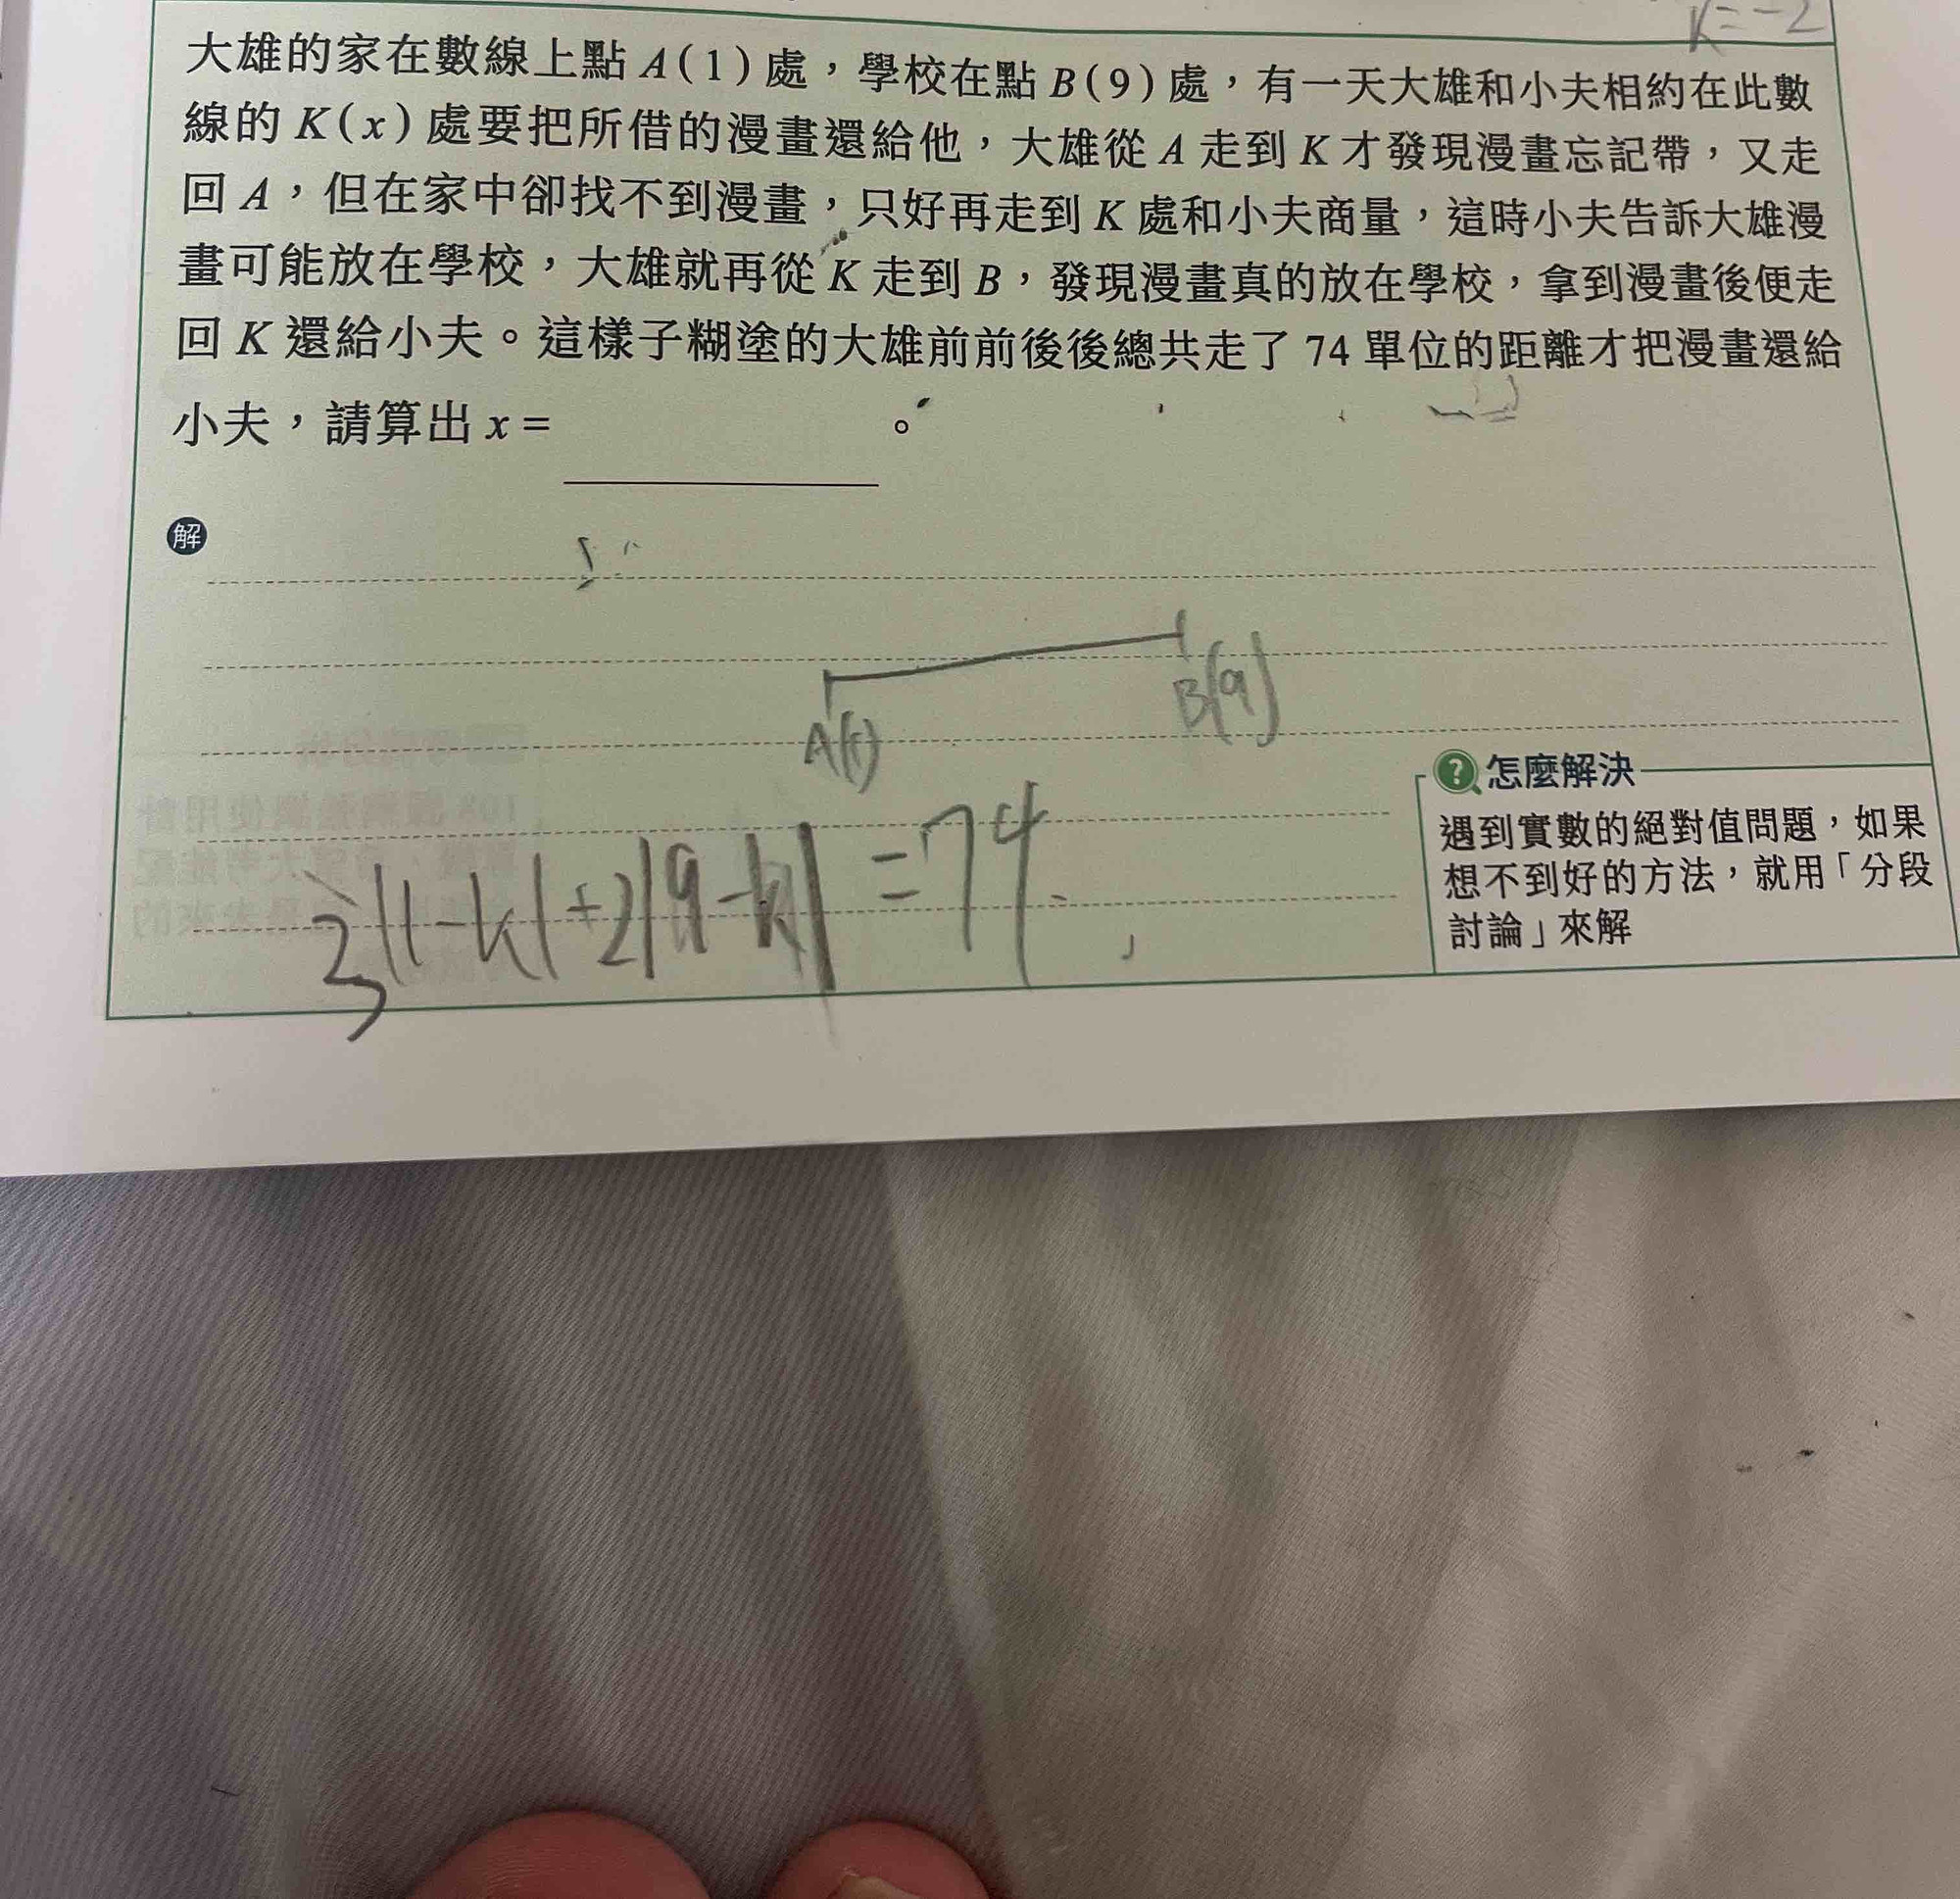 K=-2
大雄的家在數線上點 A(1) 處，學校在點 B(9) 處，有一天大雄和小夫相約在此數
線的 K(x) 處要把所借的漫畫還給他，大雄從 A 走到 K 才發現漫畫忘記帶，又走
回 A，但在家中卻找不到漫畫，只好再走到 K 處和小夫商量，這時小夫告訴大雄漫
畫可能放在學校，大雄就再從 K 走到 B，發現漫畫真的放在學校，拿到漫畫後便走
回 K 還給小夫。這樣子糊塗的大雄前前後後總共走了 74 單位的距離才把漫畫還給
小夫，請算出 x = ________。
解
A(1)
B(9)
3|1-k|+2|9-k|=74
? 怎麼解決
遇到實數的絕對值問題，如果
想不到好的方法，就用「分段
討論」來解